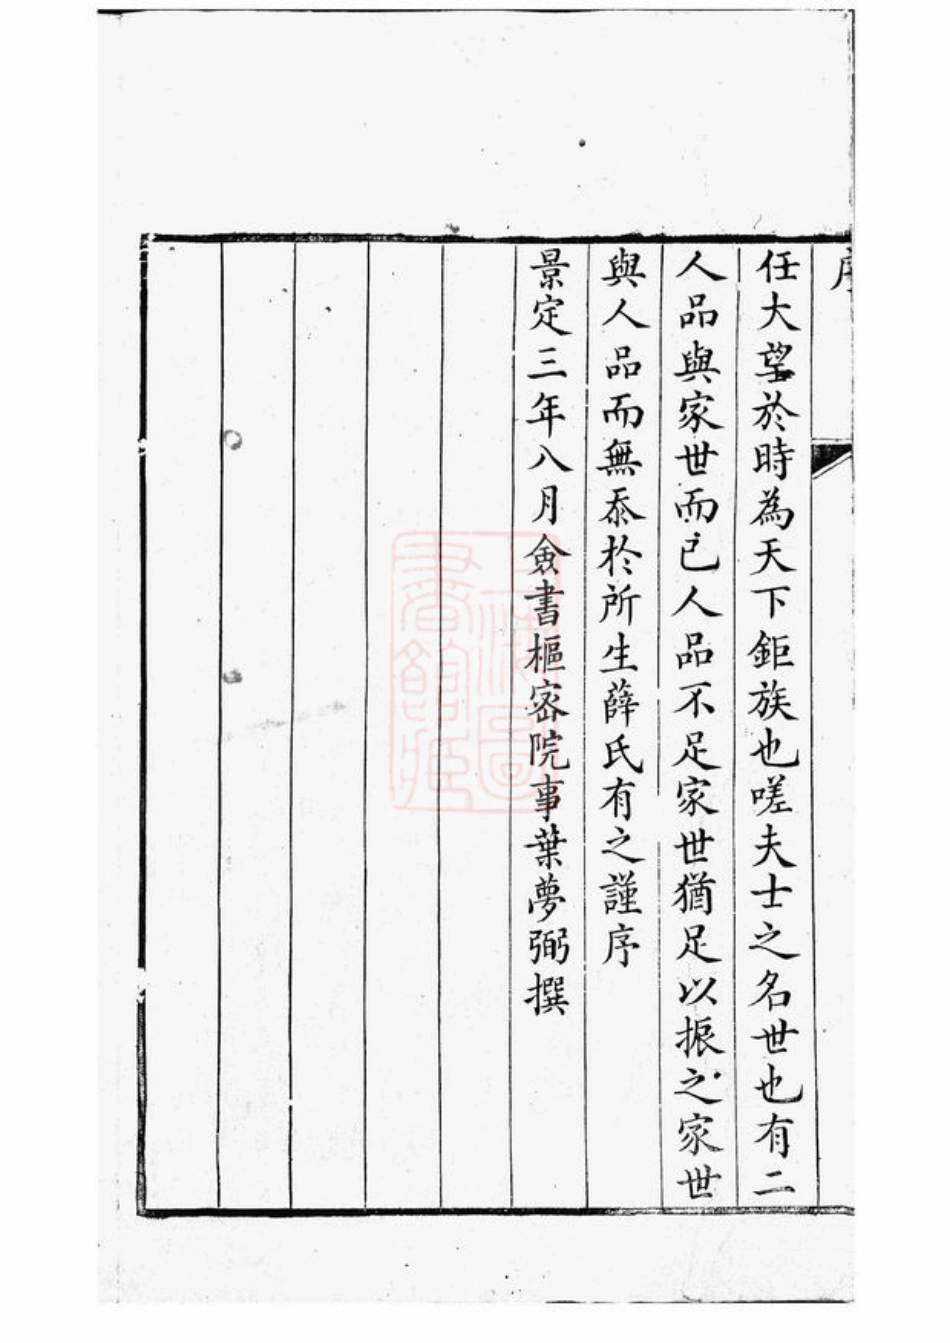 序
任大望於時為天下鉅族也嗟夫士之名世也有二
人品與家世而已人品不足家世猶足以振之家世
與人品而無忝於所生薛氏有之謹序
景定三年八月僉書樞密院事葉夢弼撰
上海圖書館藏